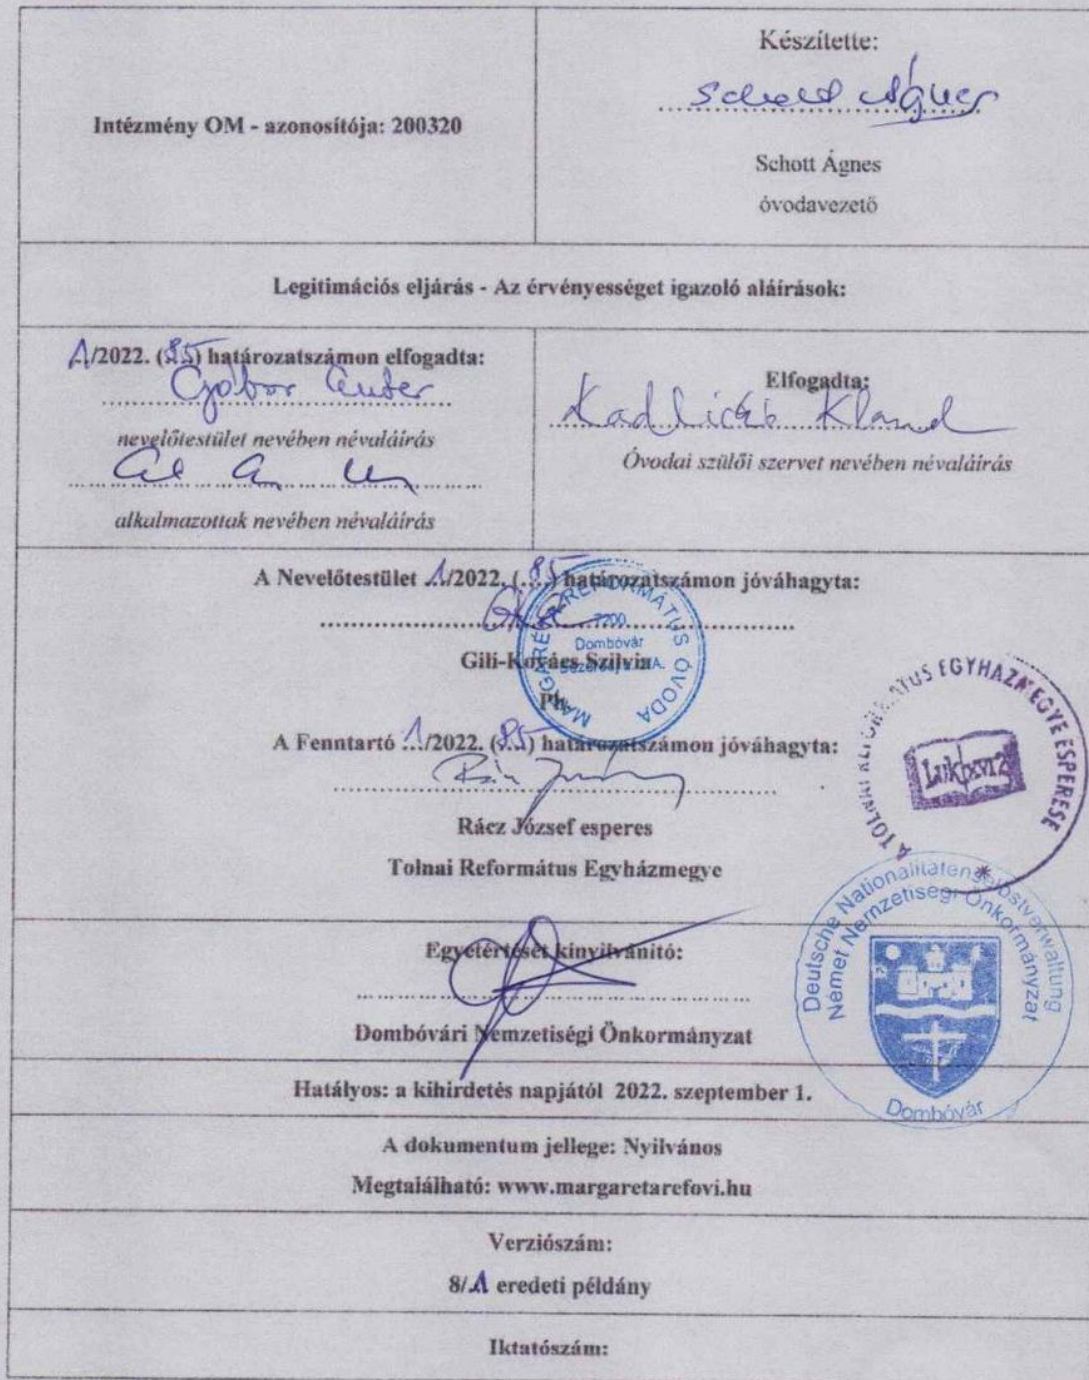 Intézmény OM - azonosítója: 200320
Készítette:
Schott Ágnes
Schott Ágnes
óvodavezető
Legitimációs eljárás - Az érvényességet igazoló aláírások:
1/2022. (85) határozatszámon elfogadta:
Gábor
nevelőtestület nevében névaláírás
alkalmazottak nevében névaláírás
Elfogadta:
Óvodai szülői szervet nevében névaláírás
A Nevelőtestület 1/2022. (85) határozatszámon jóváhagyta:
Gili-Kovács Szilvia
PH.
MARGARÉTA REFORMÁTUS ÓVODA
7200
Dombóvár
A Fenntartó 1/2022. (85) határozatszámon jóváhagyta:
Rácz József esperes
Tolnai Református Egyházmegye
A TOLNAI REFORMÁTUS EGYHÁZMEGYE ESPERESE
Egyetértését kinyilvánító:
Dombóvári Nemzetiségi Önkormányzat
Deutsche Nationalitätenselbstverwaltung
Német Nemzetiségi Önkormányzat
Dombóvár
Hatályos: a kihirdetés napjától 2022. szeptember 1.
A dokumentum jellege: Nyilvános
Megtalálható: www.margaretarefovi.hu
Verziószám:
8/1 eredeti példány
Iktatószám: